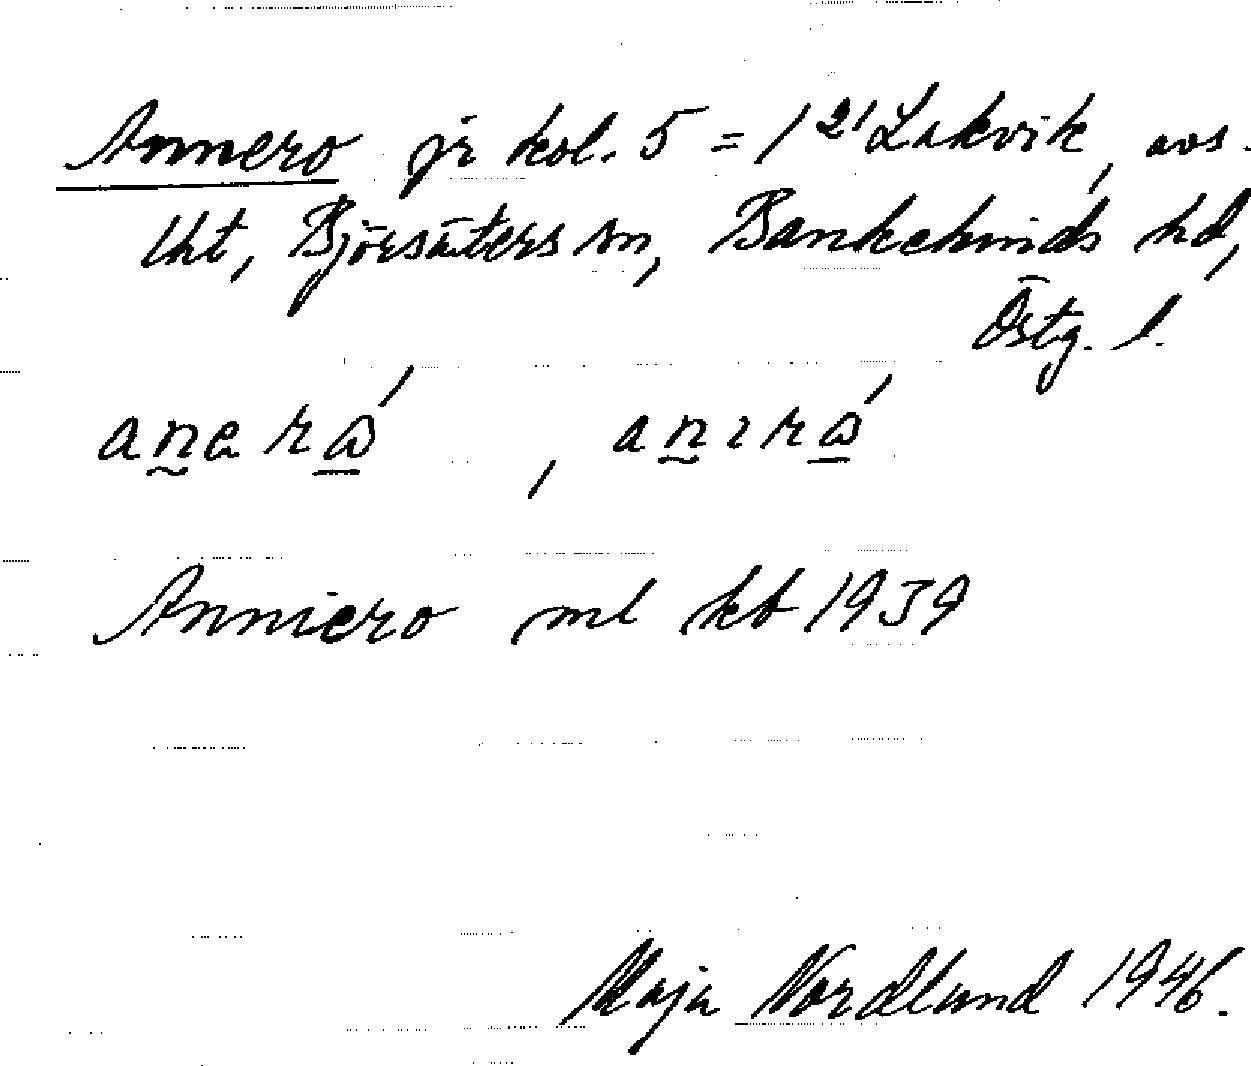 Annero jr kol. 5 = 1²¹ Lakvik, avs.
lht, Björsäters sn, Bankekinds hd,
Östg. l.
an̰erǻ̱, an̰ırǻ̱
Anniero ml kb 1939
Maja Nordlund 1946.